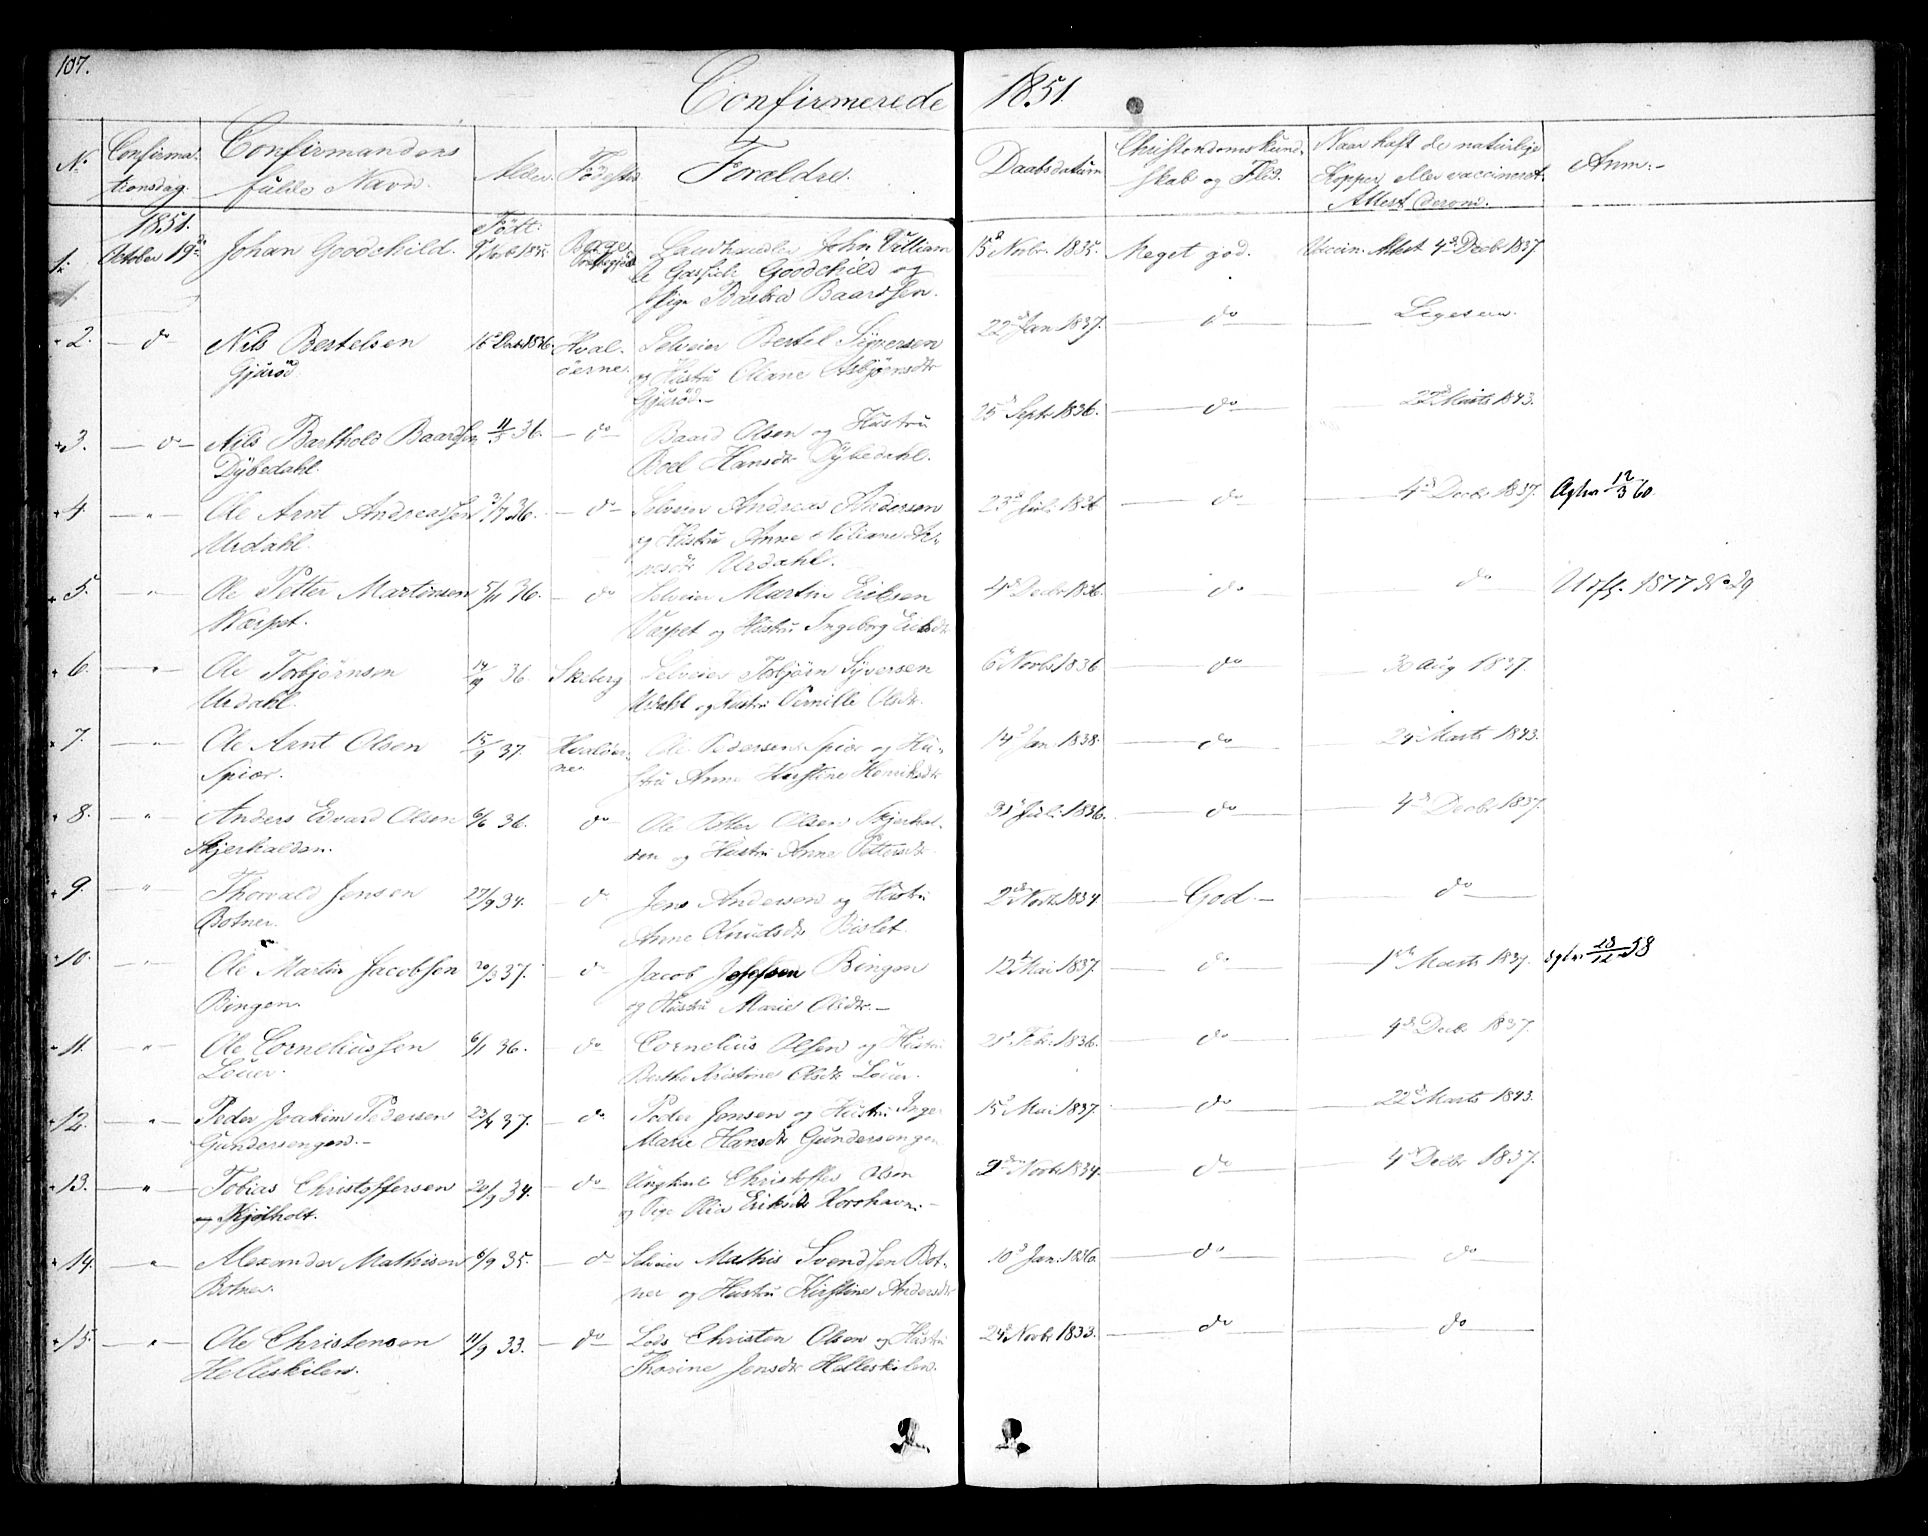 107.
Confirmerede 1851.
No. Confirmationsdag. Confirmandens fulde Navn. Alder. Födested Forældre. Daabsdatum Christendomskundskab og Flid. Naar haft de naturlige Kopper eller vaccineret. Attest derom. Anm:-
1851. Födt:
1. October 19de Johan Goodchild. Novbr 1835 Præstegjeld John William
Goodchild og
Pige Barbra Baardsen. 15de Novbr. 1835. Meget god. Vaccin. Attest 4de Decbr 1837.
2. do Nils Bertelsen Decbr 1836 Hval- Selveier Bertel Syversen 22de Jan 1837. do Ligesaa
Gjuröd öerne. og Hustru Oliane Asbjörnsdtr
Gjuröd.-
3. do Nils Barthold Baardsen 11/5 36. do Baard Olsen og Hustru 25de Septr 1836. do 22de Marts 1843.
Dybedahl. Boel Hansdtr Dybedahl.
4. " Ole Arnt Andreassen 3/7 36. do Selveier Andreas Andersen 23de Juli 1836 do 4de Decbr 1837. 12/3 60.
Urdahl. og Hustru Anne
Urdahl.
5. " Ole Petter Martinsen 5/11 36. do Selveier Martin Eriksen 4de Decbr 1836. do do Udfl. 1877 No 29
Værpet. Værpet og Hustru Ingeborg
6. " Ole Torbjörnsen 14/9 36. Skeberg Selveier Torbjörn Syversen 6te Novbr 1836 do 30 Aug 1837.
Urdahl. Urdahl og Hustru Pernille Olsdtr
7. " Ole Arnt Olsen 15/9 37. Hvalöer- Ole Pedersen Spiær og Hu- 14de Jan. 1838. do 24. Marts 1843.
Spiær. ne. stru Anne Kirstine Henriksdtr
8. " Anders Edvard Olsen 6/6 36. do Ole Petter Olsen Skjerhal- 31te Juli 1836. do 4de Decbr 1837.
Skjerhalden. den og Hustru Anne Pettersdtr
9. " Thorvald Jensen 27/9 34. do Jens Andersen og Hustru 2den Novbr 1834 God.- do
Botner. Anne Knudsdtr Bislet.
10. " Ole Martin Jacobsen 20/3 37. do Jacob Bingen 12te Mai 1837. do 1ste Marts 1837. 28/12 58
Bingen. og Hustru Marie Olsdtr.-
11. " Ole Corneliussen 6/1 36. do Cornelius Olsen og Hustru Feb. 1836. do 4de Decbr 1837.
Löuer. Berthe Kristine Olsdtr Löuer.
12. " Peder Joakim Pedersen 23/4 37. do Peder Jensen og Hustru Inger 15de Mai 1837. do 22de Marts 1843.
Gundersengen.- Marie Hansdtr Gundersengen
13. " Tobias Christoffersen 20/9 34. do Ungkarl Christoffer Olsen 2den Novbr 1834. do 4de Decbr 1837.
Kjölholt. og Pige Olea Eriksdtr Korshavn.-
14. " Alexander Mathisen 6/9 35. do Selveier Mathis Svendsen Bot- 10de Jan. 1836. do do
Botner. ner og Hustru Kirstine Andersdtr
15. " Ole Christensen 11/9 33. do Lods Christen Olsen og Hustru 24de Novbr 1833. do do
Helleskilen. Thorine Jensdtr Helleskilen.